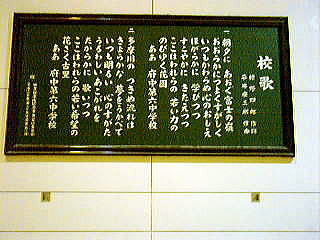 校歌
一 朝夕に あおぐ富士の嶺
おおらかにつよくすがしく
いつもかわらぬ心のおしえ
ほがらかに 学びつつ
すこやかに きたえつつ
ここはわれらの 若い力の
のびゆく花園
ああ 府中第六中学校
二 多摩川の つきぬ流れは
きよらかな 夢をうかべて
いつも明るい 心のすがた
うるわしい あこがれを
たからかに 歌いつつ
ここはわれらの若い希望の
花さく古里
ああ 府中第六中学校